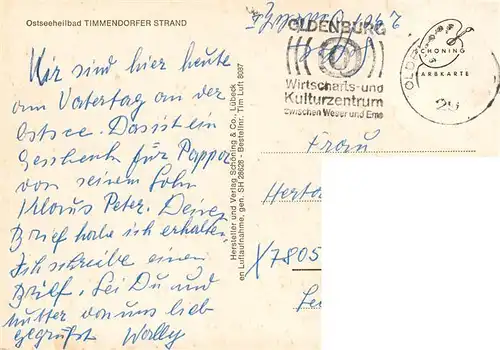 Ostseeheilbad TIMMENDORFER STRAND
Wir sind hier heute
am Vatertag an der
Ostsee. Das ist ein
Geschenk für Pappa
von seinem Sohn
Klaus Peter. Deinen
Brief habe ich erhalten
Ich schreibe einen
Brief. Sei Du und
Mutter von uns lieb
gegrüßt Wally
Hersteller und Verlag Schöning & Co., Lübeck
en Luftaufnahme, gen. SH 28628 - Bestellnr. Tim Luft 8087
OLDENBURG
Wirtschafts-und
Kulturzentrum
zwischen Weser und Ems
SCHÖNING
FARBKARTE
OLDENB
Frau
Herta
7805